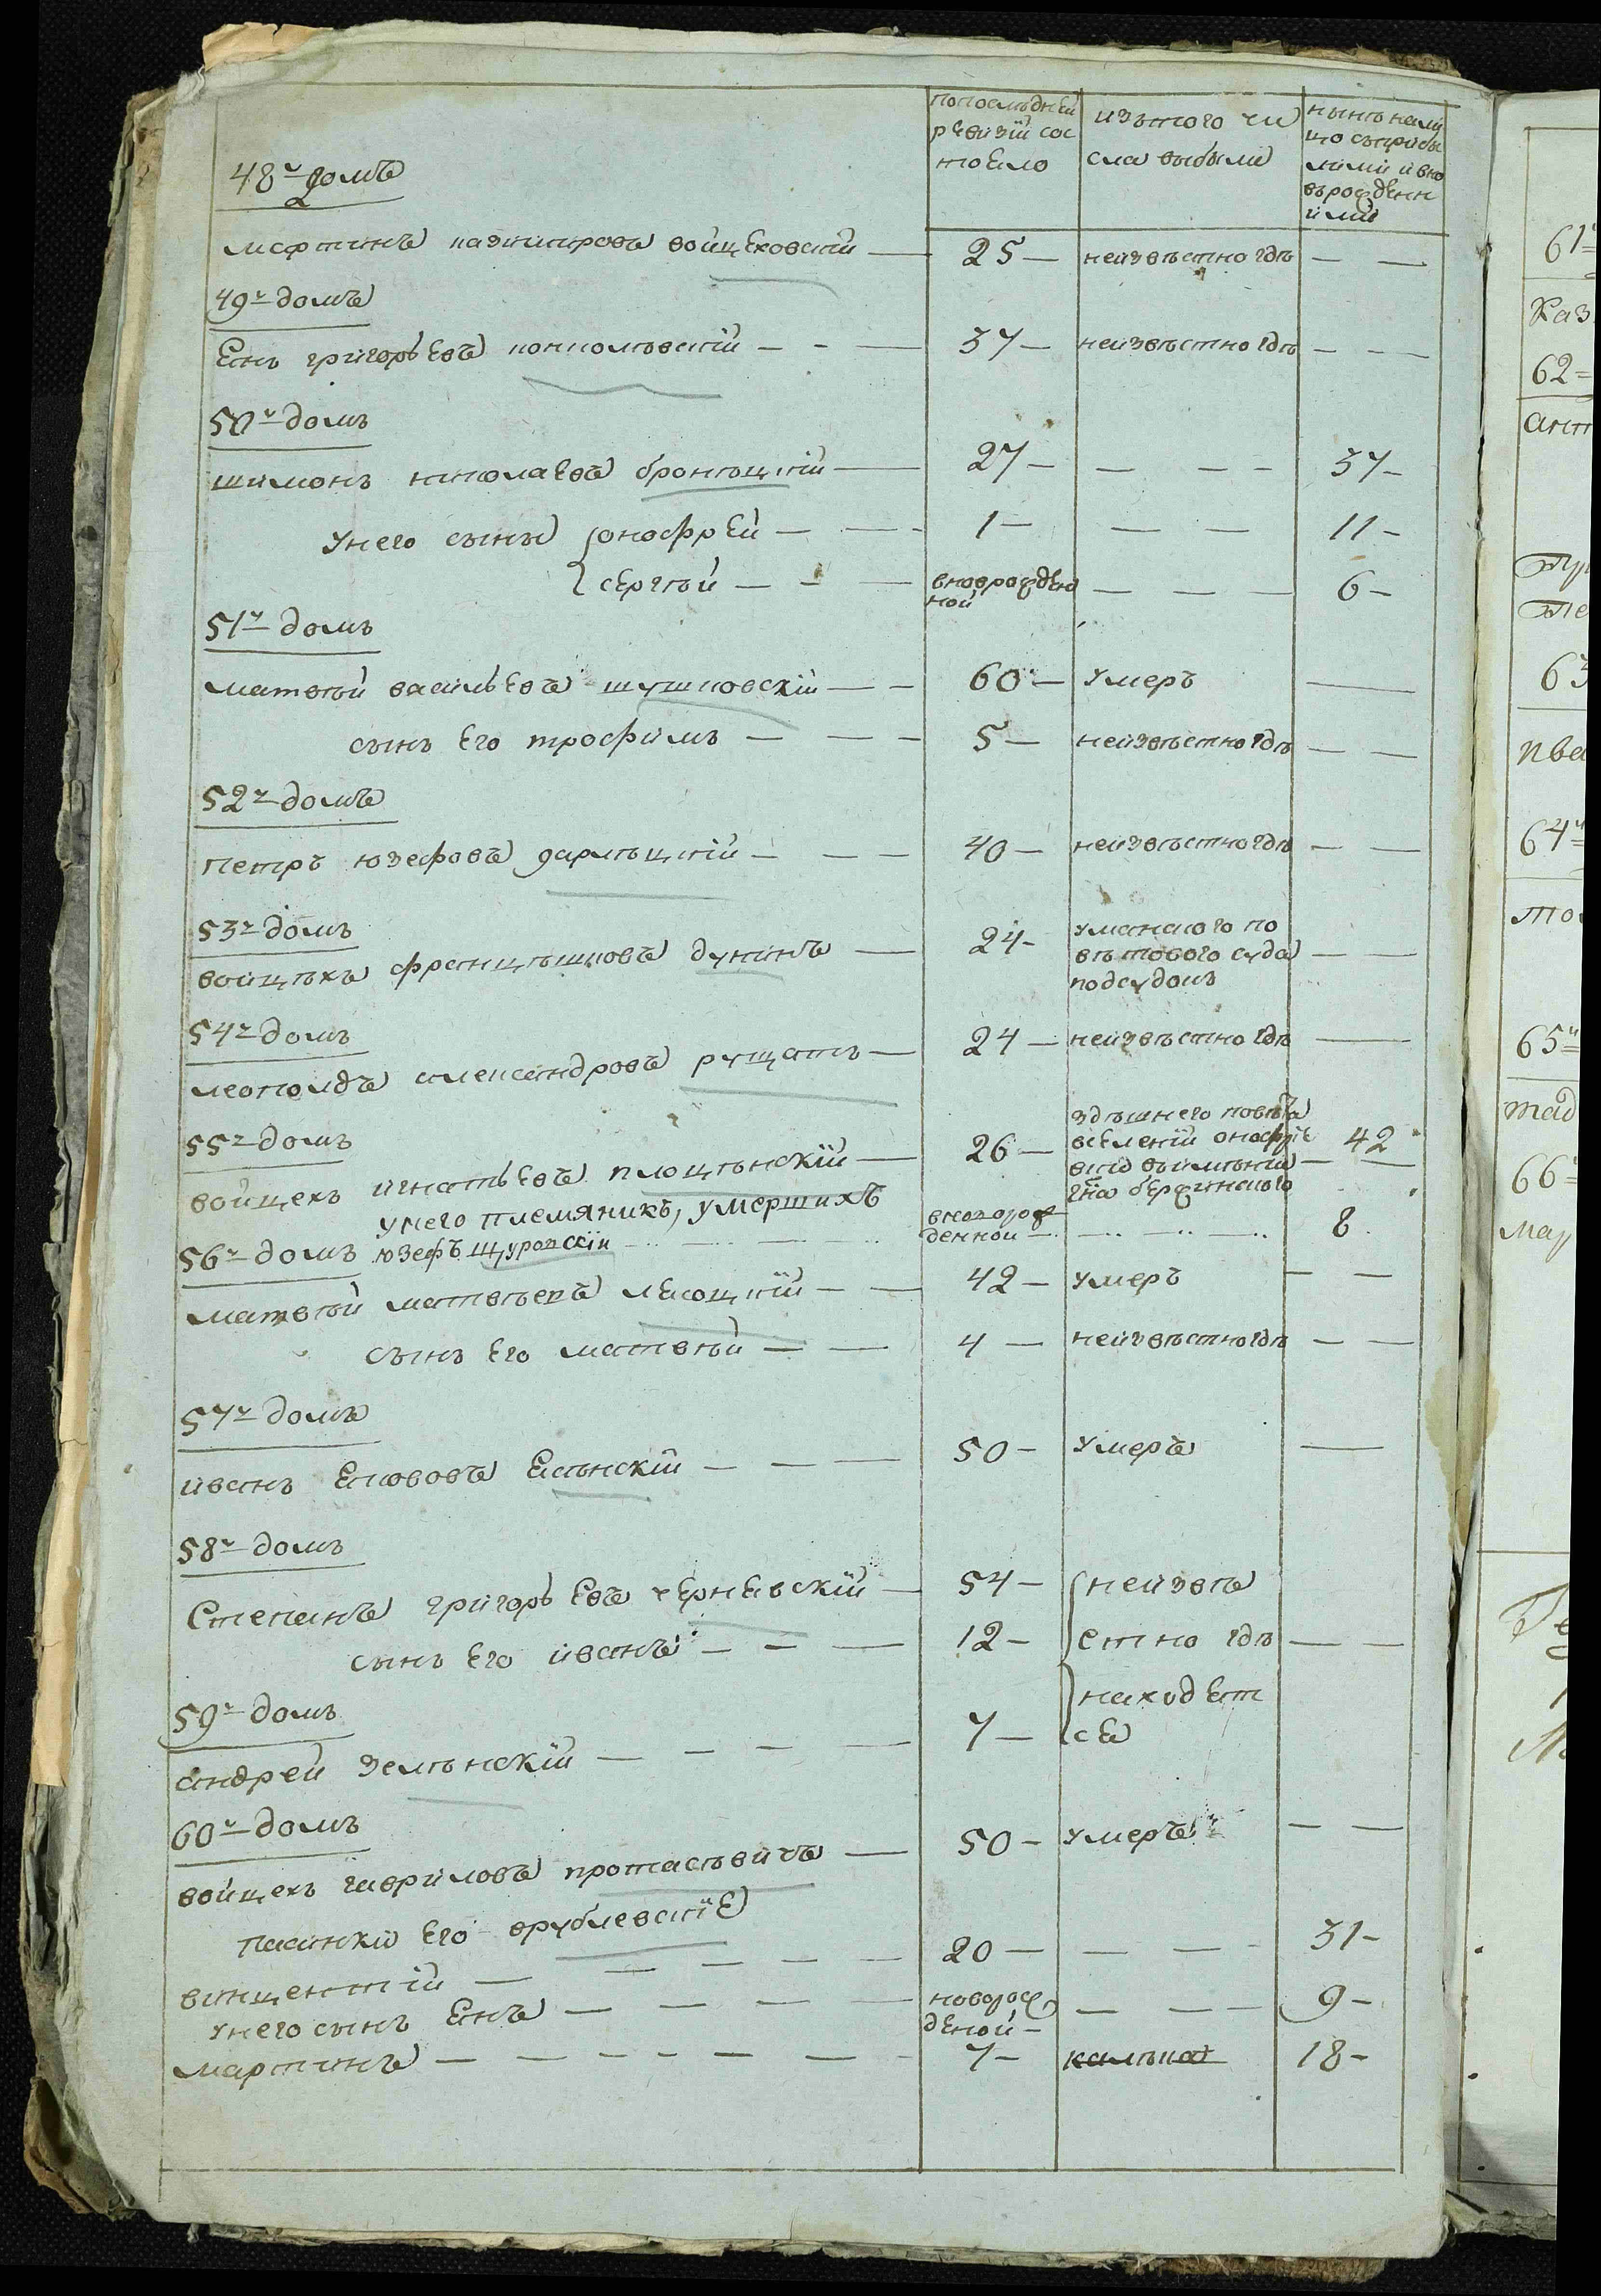 попослѣдней
ревизіи сос
тоѣло
изътого чи
сла выбыли
нынѣ нали
цо съприбы
лими ивно
върожденн
ими
48й домъ
мартинъ казимировъ войцеховскій — 25 — неизвѣстно гдѣ — —
49й домъ
Енъ григорьевъ — — — 37 — неизвѣстно гдѣ — —
50й домъ
шимонъ николаевъ бронѣцкій — 27 — — — — 37 —
унего сыны онофрей — — 1 — — — 11 —
сергѣй — — — вноврожден
ной — — — 6 —
51й домъ
матвѣй васильевъ шушковскій — — 60 — умеръ —
сынъ его трофимъ — — — 5 — неизвѣстно гдѣ — —
52й домъ
петръ юзефовъ — — — 40 — неизвѣстно гдѣ — —
53й домъ
войцѣхъ францѣшковъ дунинъ — 24 — уманского по
вѣтового суда — —
подсудокъ
54й домъ
леополдъ александровъ рущать — 24 — неизвѣстно гдѣ —
55й домъ
войцехъ игнатьевъ площѣнскій — 26 — здѣшнего повѣта
вселеніи 42
унего племяникъ, умершихъ
юзефъ щуровскій вноврож
денной — 8
56й домъ
матвѣй матвѣевъ — — 42 — умеръ — —
сынъ его матвѣй — — 4 — неизвѣстно гдѣ — —
57й домъ
иванъ Екововъ Ельнскій — — — 50 — умеръ —
58й домъ
Степанъ григорьевъ черневскій — 54 — неизвѣ
сынъ его иванъ — — — 12 — стно гдѣ — —
находет
се
59й домъ
андрей зелѣнскій — — — — 7 —
60й домъ
войцехъ гавриловъ протасѣвичъ — 50 — умеръ — —
пасинки его врублевскіе
винцентій — — — — — 20 — — — — 31 —
унего сынъ Енъ — — — — — новорож
деной — — — — 9 —
мартинъ — — — — — — — 7 — 18 —
61
Каз
62
ант
63
64
65
тад
66
мар